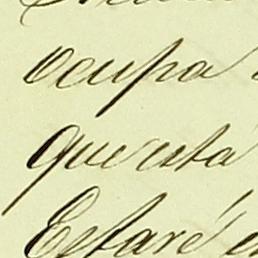 ocupa
que está
Estaré